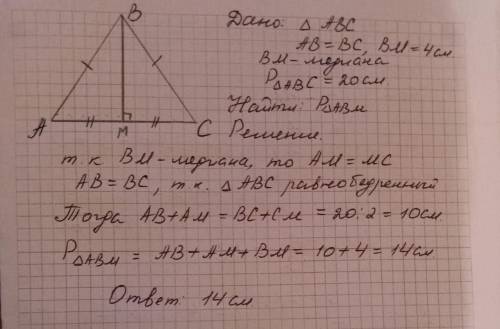 B
A
M
C
Дано: △ ABC
AB = BC, BM = 4см.
BM - медиана
P△ABC = 20см.
Найти: P△ABM
Решение.
т.к BM - медиана, то AM = MC
AB = BC, т.к. △ ABC равнобедренный
Тогда AB + AM = BC + CM = 20:2 = 10см
P△ABM = AB + AM + BM = 10 + 4 = 14см
Ответ: 14см